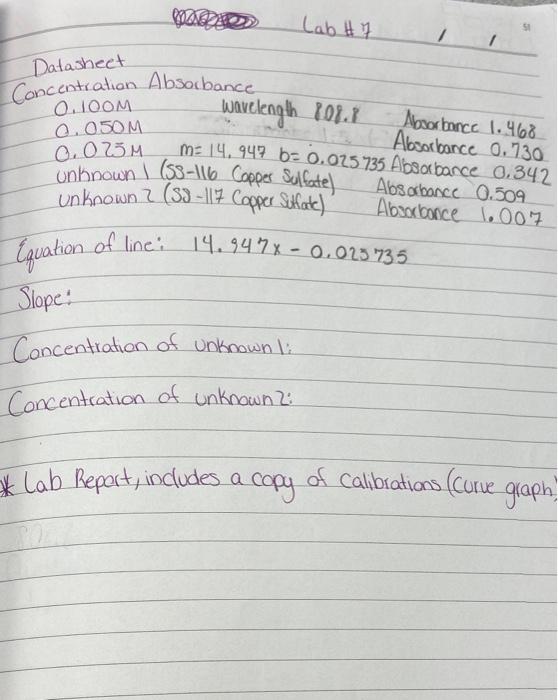 Lab #7 / / 51
Datasheet
Concentration Absorbance
0.100M wavelength 808.8 Absorbance 1.468
0.050M Absorbance 0.730
0.025M m= 14.947 b= 0.025735 Absorbance 0.342
unknown 1 (SS-116 Copper Sulfate) Absorbance 0.509
unknown 2 (SS-117 Copper Sulfate) Absorbance 1.007
Equation of line: 14.947x - 0.025735
Slope:
Concentration of unknown 1:
Concentration of unknown 2:
* Lab Report, includes a copy of Calibrations (curve graph)